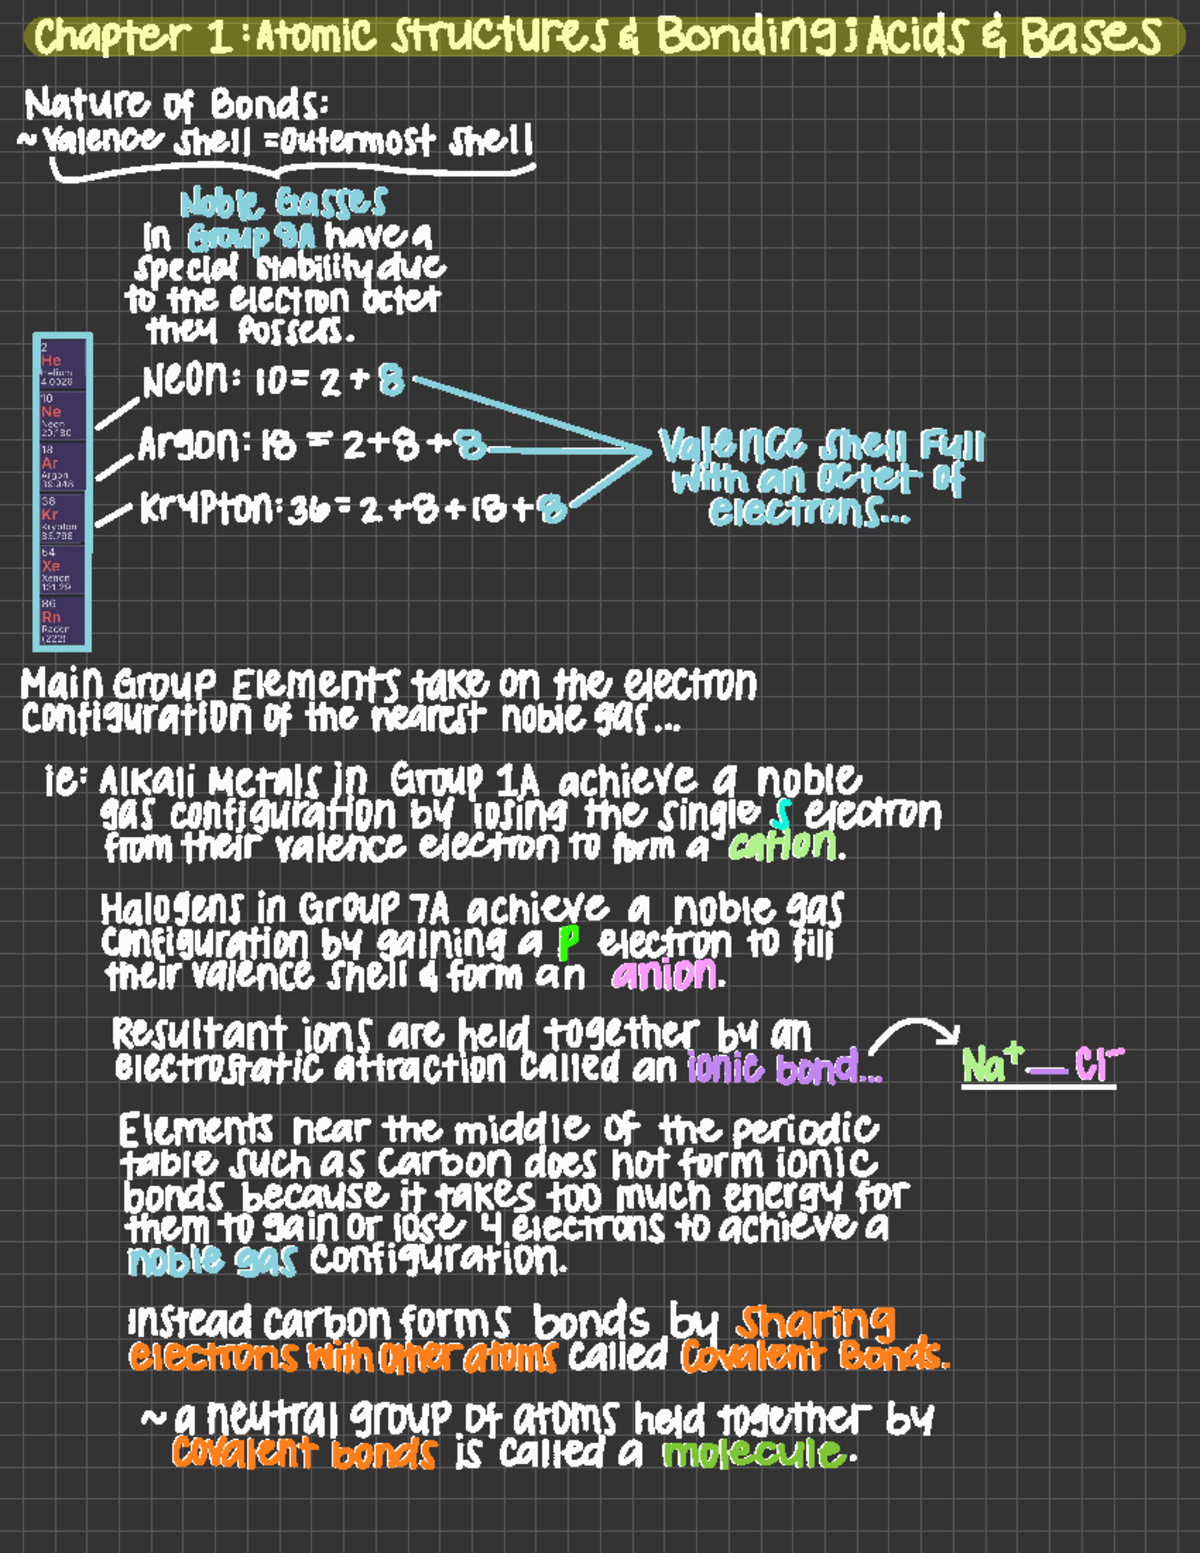 Chapter 1: Atomic Structures & Bonding; Acids & Bases
Nature of Bonds:
~ Valence shell = Outermost shell
Noble Gasses
In Group 8A have a
special stability due
to the electron octet
they possess.
2
He
Helium
4.0026
10
Ne
Neon
20.180
18
Ar
Argon
39.948
36
Kr
Krypton
83.798
54
Xe
Xenon
131.29
86
Rn
Radon
(222)
Neon: 10 = 2 + 8
Argon: 18 = 2+8+8
Krypton: 36 = 2+8+18+8
Valence shell Full
with an octet of
electrons...
Main Group Elements take on the electron
configuration of the nearest noble gas...
ie: Alkali Metals in Group 1A achieve a noble
gas configuration by losing the single s electron
from their valence electron to form a cation.
Halogens in Group 7A achieve a noble gas
configuration by gaining a p electron to fill
their valence shell & form an anion.
Resultant ions are held together by an
electrostatic attraction called an ionic bond...
Na⁺ — Cl⁻
Elements near the middle of the periodic
table such as Carbon does not form ionic
bonds because it takes too much energy for
them to gain or lose 4 electrons to achieve a
noble gas configuration.
Instead carbon forms bonds by Sharing
electrons with other atoms called Covalent Bonds.
~ a neutral group of atoms held together by
covalent bonds is called a molecule.